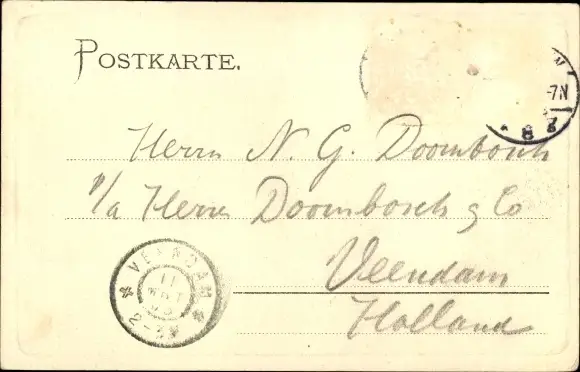 POSTKARTE.
N
-7N
* 8 8
Herrn N. G. Doornbosch
p/a Herrn Doornbosch & Co
Veendam
Holland
VEENDAM
11
2-3N